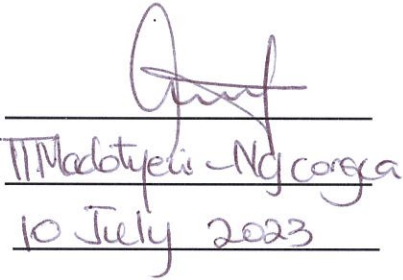 TTMadotyeni-Ngcongca
10 July 2023